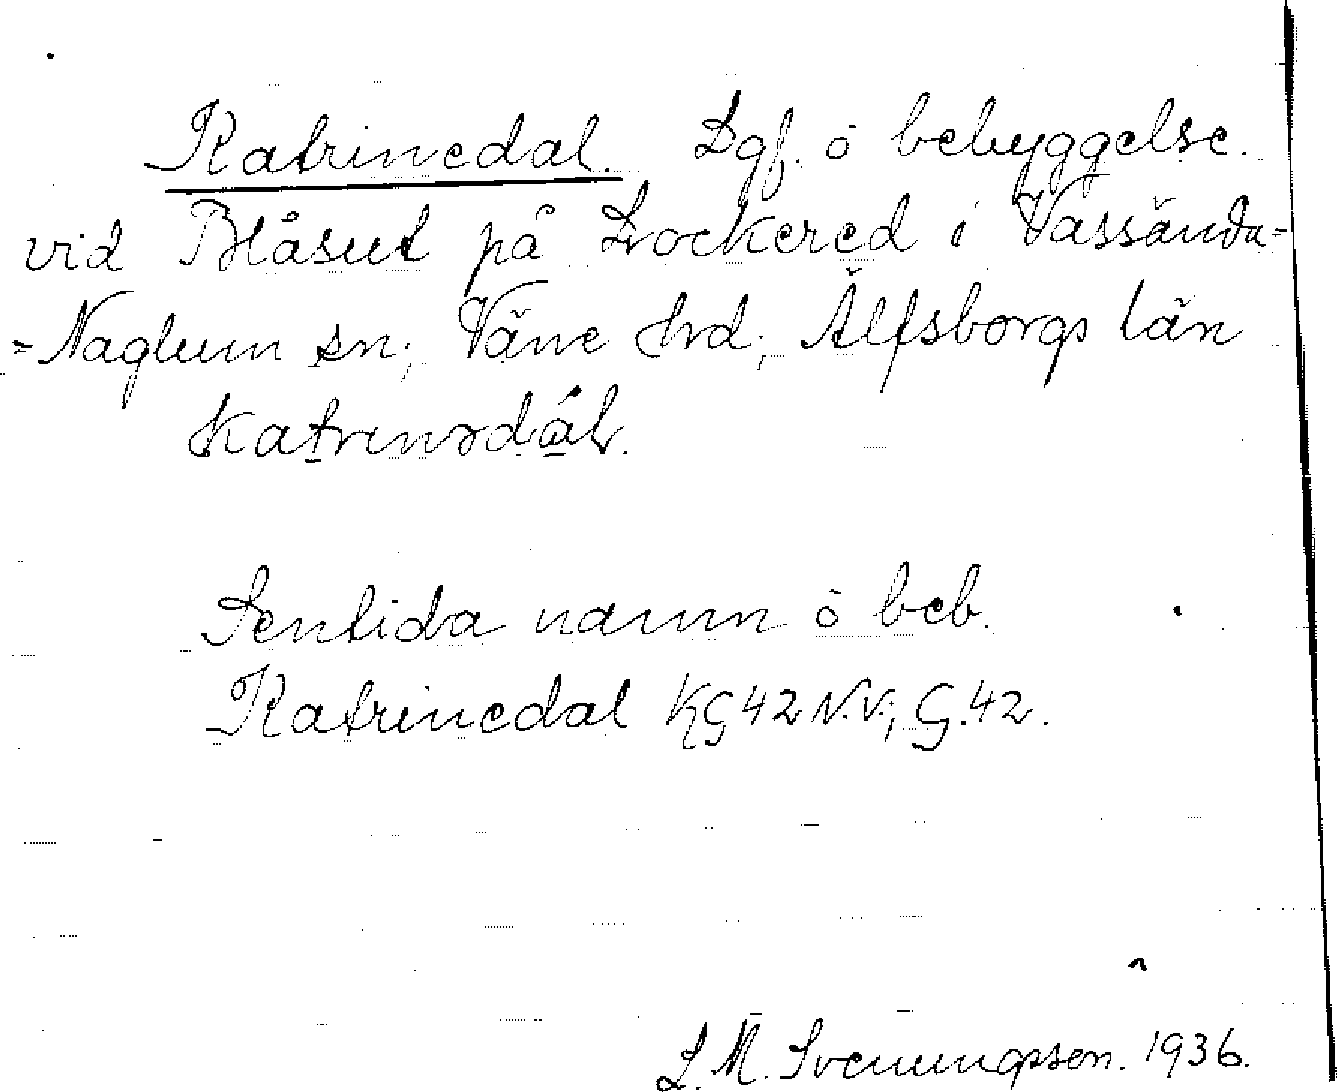 Katrinedal. Lgf. o bebyggelse.
vid Blåsut på Lockered i Vassända-
-Naglum sn; Väne hrd; Älfsborgs län
katrinədál.
Sentida namn o beb.
Katrinedal KG 42 N.V.; G. 42.
L. M. Svenungsson. 1936.